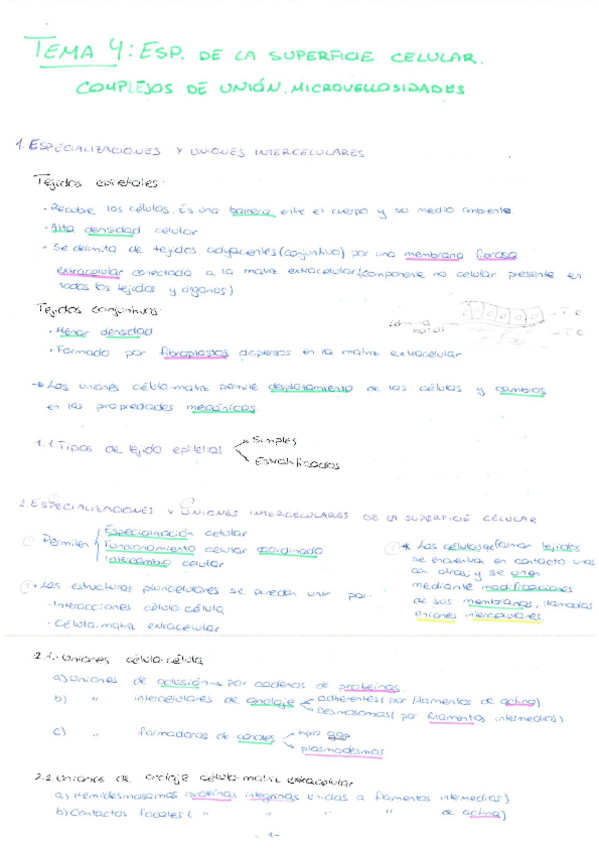 TEMA 4: ESP. DE LA SUPERFICIE CELULAR.
COMPLEJOS DE UNIÓN. MICROVELLOSIDADES
1. ESPECIALIZACIONES Y UNIONES INTERCELULARES
Tejidos epiteliales:
· Recubre los células. Es una barrera entre el cuerpo y su medio ambiente.
· Alta densidad celular
· Se delimita de tejidos adyacentes (conjuntivo) por una membrana fibrosa
extracelular conectada a la matriz extracelular (componente no celular presente en
todos los tejidos y órganos)
Tejidos conjuntivos:
· Menor densidad
· Formado por fibroplastos dispersos en la matriz extracelular
Lámina
basal
T.E
T.C
Las uniones célula-matriz permite desplazamiento de las células y cambios
en las propiedades mecánicas.
1.1 Tipos de tejido epitelial
Simples
Estratificados
2. ESPECIALIZACIONES Y UNIONES INTERCELULARES DE LA SUPERFICIE CELULAR
① Permiten
Especialización celular
Funcionamiento celular coordinado
Intercambio celular
* Las células q forman tejidos
se encuentran en contacto unas
con otras, y se unen
mediante modificaciones
de sus membranas, llamadas
uniones intercelulares.
· Las estructuras pluricelulares se pueden unir por:
· Interacciones célula célula
· Célula-matriz extracelular
2.1.- Uniones célula-célula
a) Uniones de oclusión → por cadenas de proteínas.
b) " intercelulares de anclaje
adherentes (por filamentos de actina)
Desmosomas (por filamentos intermedios)
c) " formadoras de canales
tipo gap
plasmodesmos
2.2 Uniones de anclaje célula-matriz extracelular
a) Hemidesmosomas (proteínas integrinas unidas a filamentos intermedios)
b) Contactos focales ( " " " " de actina)
- 1 -